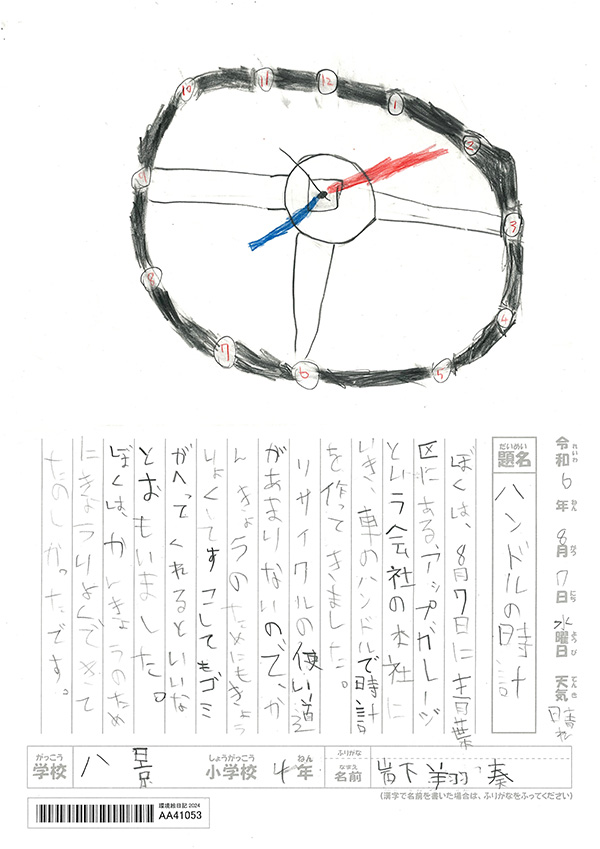 12
1
2
3
4
5
6
7
8
9
10
11
令和6年8月7日水曜日 天気 晴れ
れいわ ねん がつ にち ようび てんき
だいめい
題名
ハンドルの時計
ぼくは、8月7日に青葉
区にある、アップガレージ
という会社の本社に
いき、車のハンドルで時計
を作ってきました。
リサイクルの使い道
があまりないので、か
んきょうのためにもきょう
りょくしてすこしでもゴミ
がへってくれるといいな
とおもいました。
ぼくは、かんきょうのため
にきょうりょくできて
たのしかったです。
がっこう
学校
八景
しょうがっこう
小学校
4年
ねん
ふりがな
なまえ
名前
岩下 翔奏
(漢字で名前を書いた場合は、ふりがなをふってください)
環境絵日記 2024
AA41053